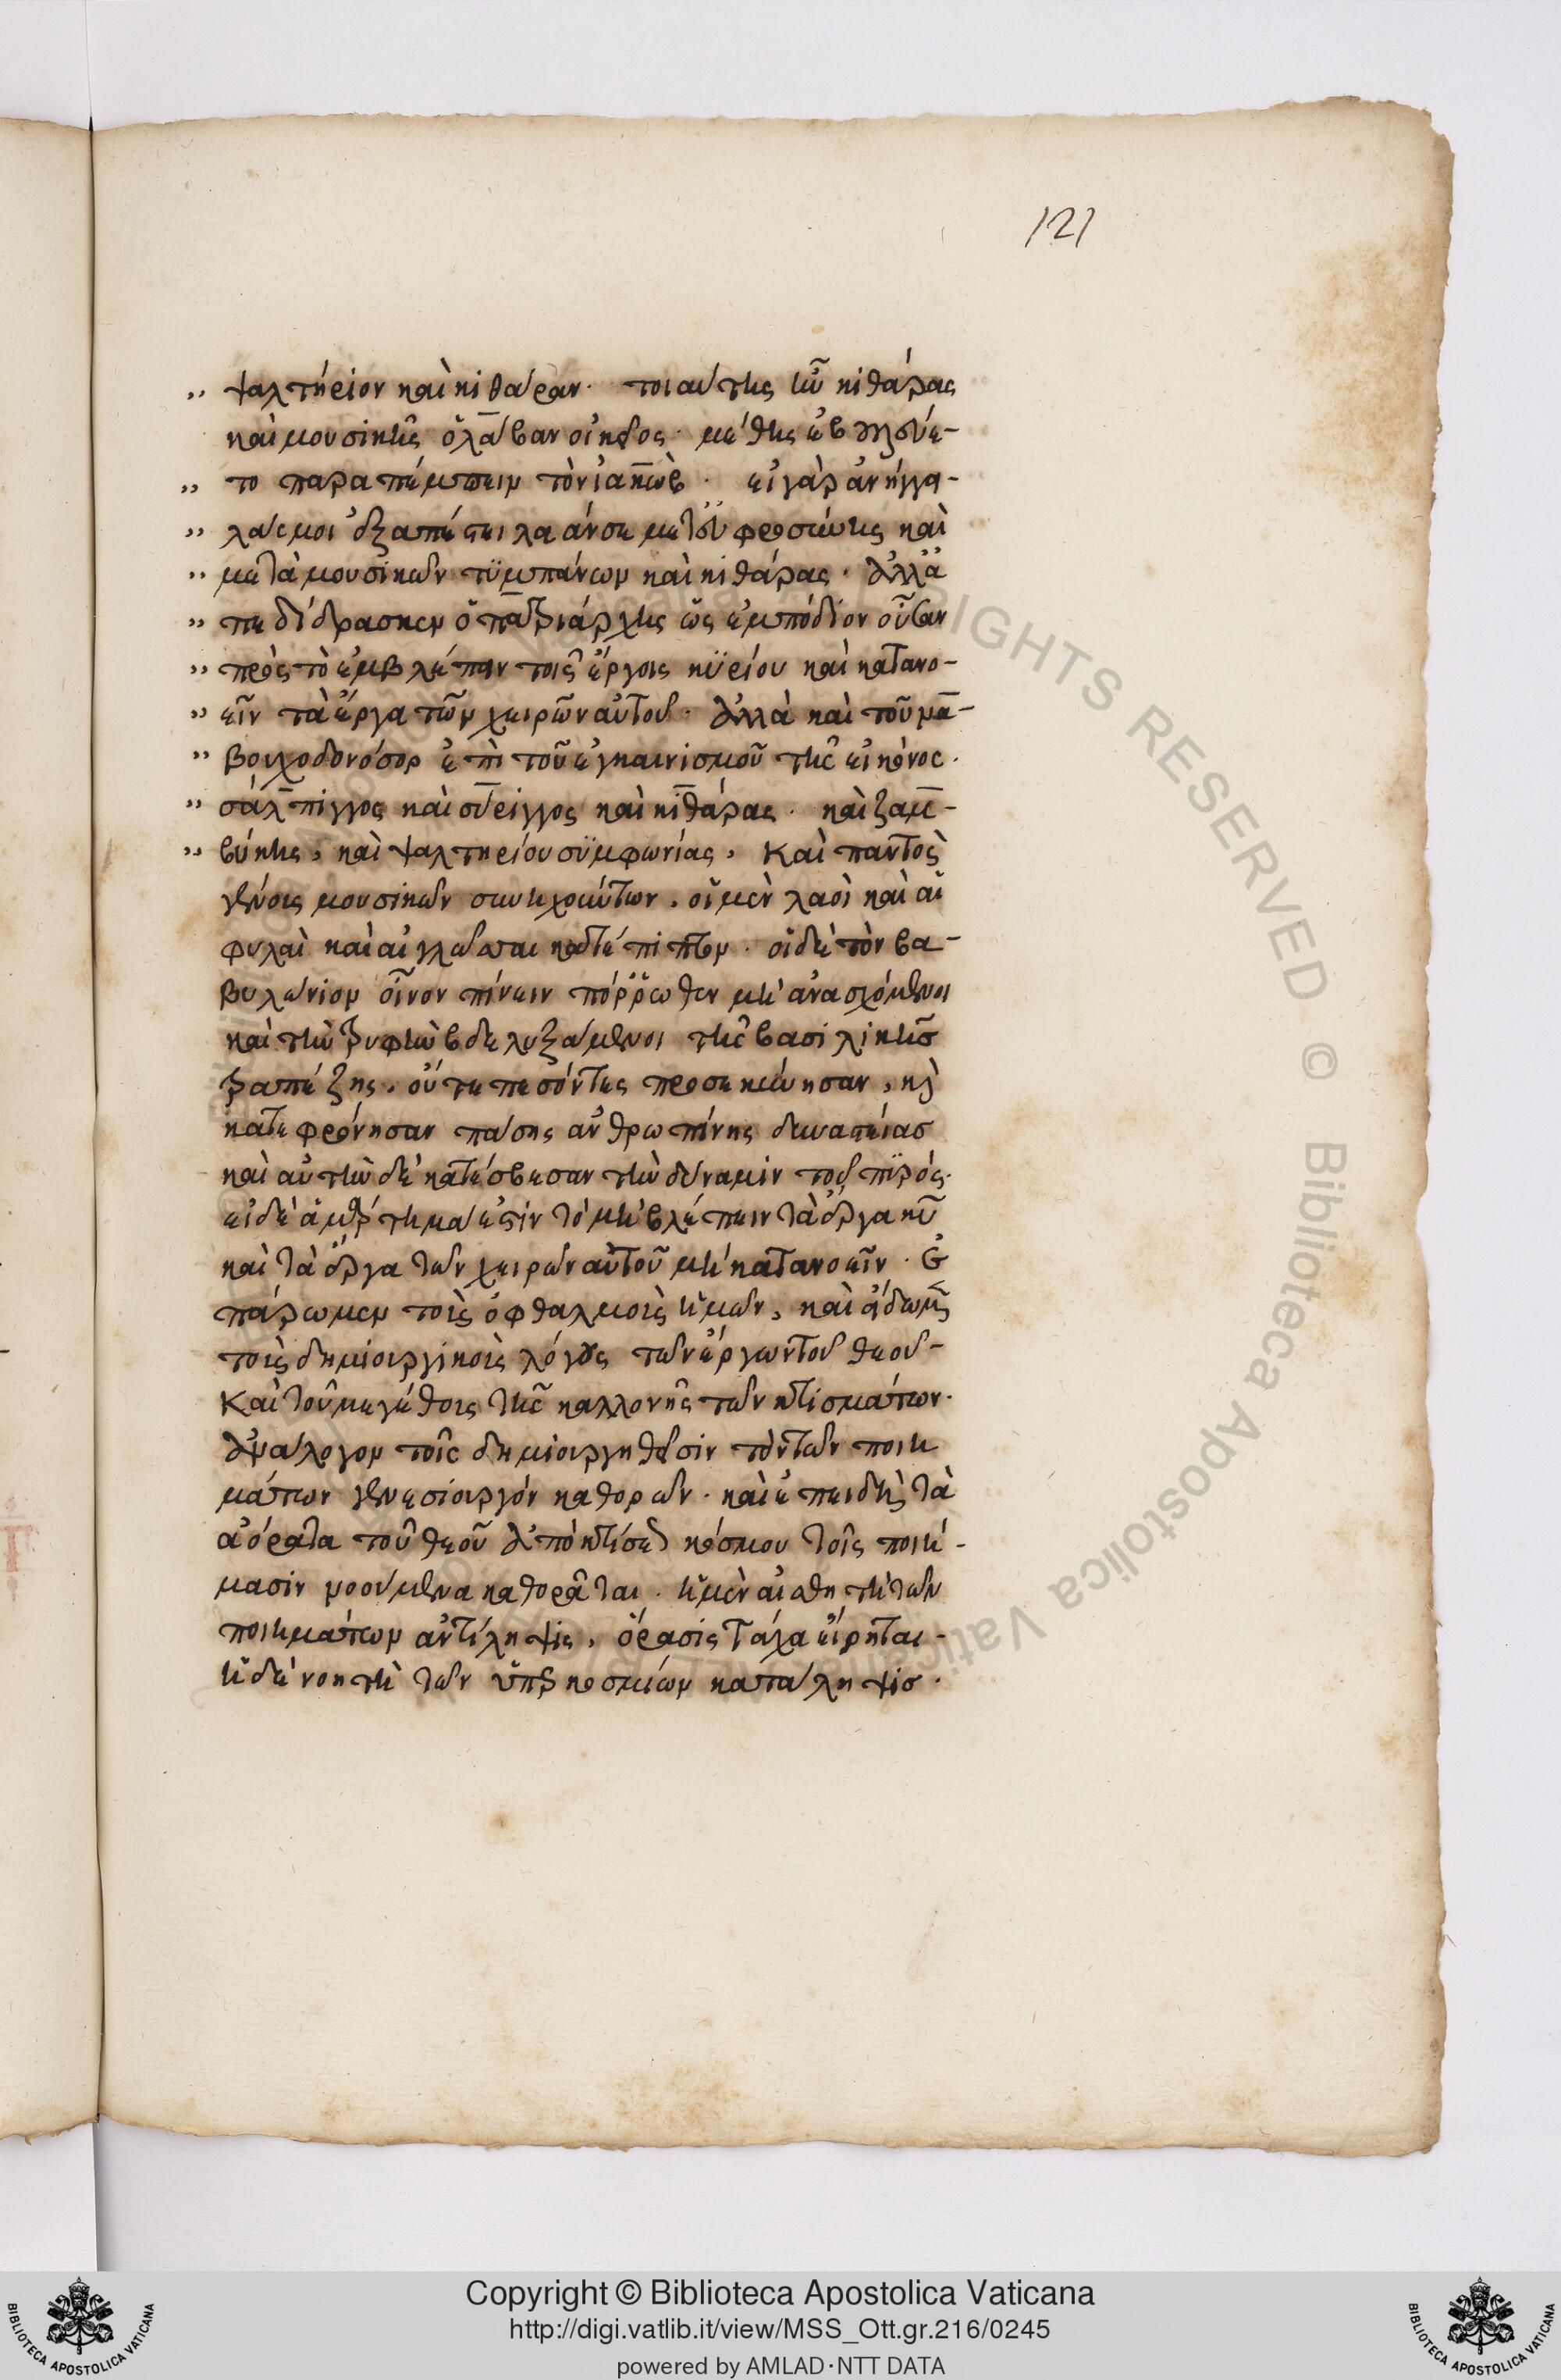 121
,, ψαλτήριον καὶ κιθάραν. τοιαύτης ἦν κιθάρας
καὶ μουσικῆς ὁ λάβαν οἰκεῖος. μεθ' ἧς ἐβούλε-
,, το παραπέμπειν τὸν ἰακώβ. εἰ γὰρ ἀνήγγει-
,, λάς μοι ἐξαπέστειλα ἄν σε μετ' εὐφροσύνης καὶ
,, μετὰ μουσικῶν τϋμπάνων καὶ κιθάρας. ἀλλ' ἀ
,, πεδίδρασκεν ὁ πατριάρχης ὡς ἐμπόδιον οὖσαν
,, πρὸς τὸ ἐμβλέπειν τοῖς ἔργοις κϋρίου καὶ κατανο-
,, εῖν τὰ ἔργα τῶν χειρῶν αὐτοῦ. ἀλλὰ καὶ τοῦ να-
,, βουχοδονόσορ ἐπὶ τοῦ ἐγκαινισμοῦ τῆς εἰκόνος.
,, σάλπιγγος καὶ σύριγγος καὶ κιθάρας. καὶ ζαμ-
,, βύκης, καὶ ψαλτηρίου σϋμφωνίας, Καὶ παντὸς
γένους μουσικῶν συνηχούντων. οἱ μὲν λαοὶ καὶ αἱ
φυλαὶ καὶ αἱ γλῶσσαι κατέπιπτον. οἱ δὲ τὸν βα-
βυλώνιον οἶνον πίνειν πόῤῥωθεν μὴ ἀνασχόμενοι
καὶ τὴν τρυφὴν βδελυξάμενοι τῆς βασιλικῆς
τραπέζης. οὔτε πεσόντες προσεκύνησαν, κὶ
κατεφρόνησαν πάσης ἀνθρωπίνης δυναστείας
καὶ αὐτὴν δὲ κατέσβεσαν τὴν δύναμιν τοῦ πϋρός.
εἰ δὲ ἁμάρτημα ἐστὶν τὸ μὴ βλέπειν τὰ ἔργα κυ
καὶ τὰ ἔργα τῶν χειρῶν αὐτοῦ μὴ κατανοεῖν. Ἐ
πάρωμεν τοῖς ὀφθαλμοῖς ἡμῶν, καὶ ἴδωμεν
τοῖς δημιουργικοῖς λόγους τῶν ἔργων τοῦ θεοῦ-
Καὶ τοῦ μεγέθους τῆς καλλονῆς τῶν κτισμάτων.
ἀνάλογον τοῖς δημιουργηθεῖσιν τὸν τῶν ποιη
μάτων γενεσιουργόν καθορᾶν. καὶ ἐπειδὴ τὰ
ἀόρατα τοῦ θεοῦ ἀπὸ κτίσεως κόσμου τοῖς ποιή-
μασιν νοούμενα καθορᾶται. ἡ μὲν αἰσθητὴ τῶν
ποιημάτων ἀντίληψις, ὅρασις τάχα εἴρηται-
ἡ δὲ νοητὴ τῶν ὑπερκοσμίων κατάληψις.
ALL RIGHTS RESERVED © Biblioteca Apostolica Vaticana
Copyright © Biblioteca Apostolica Vaticana
http://digi.vatlib.it/view/MSS_Ott.gr.216/0245
powered by AMLAD·NTT DATA
BIBLIOTECA APOSTOLICA VATICANA
BIBLIOTECA APOSTOLICA VATICANA